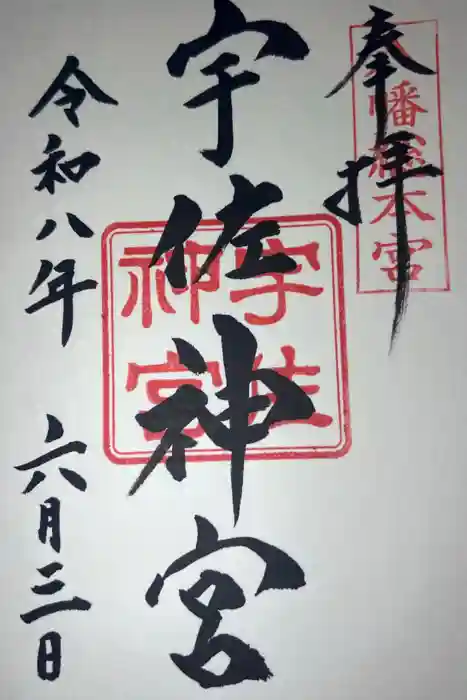 奉拝
八幡総本宮
宇佐神宮
宇佐
神宮
令和八年
六月三日